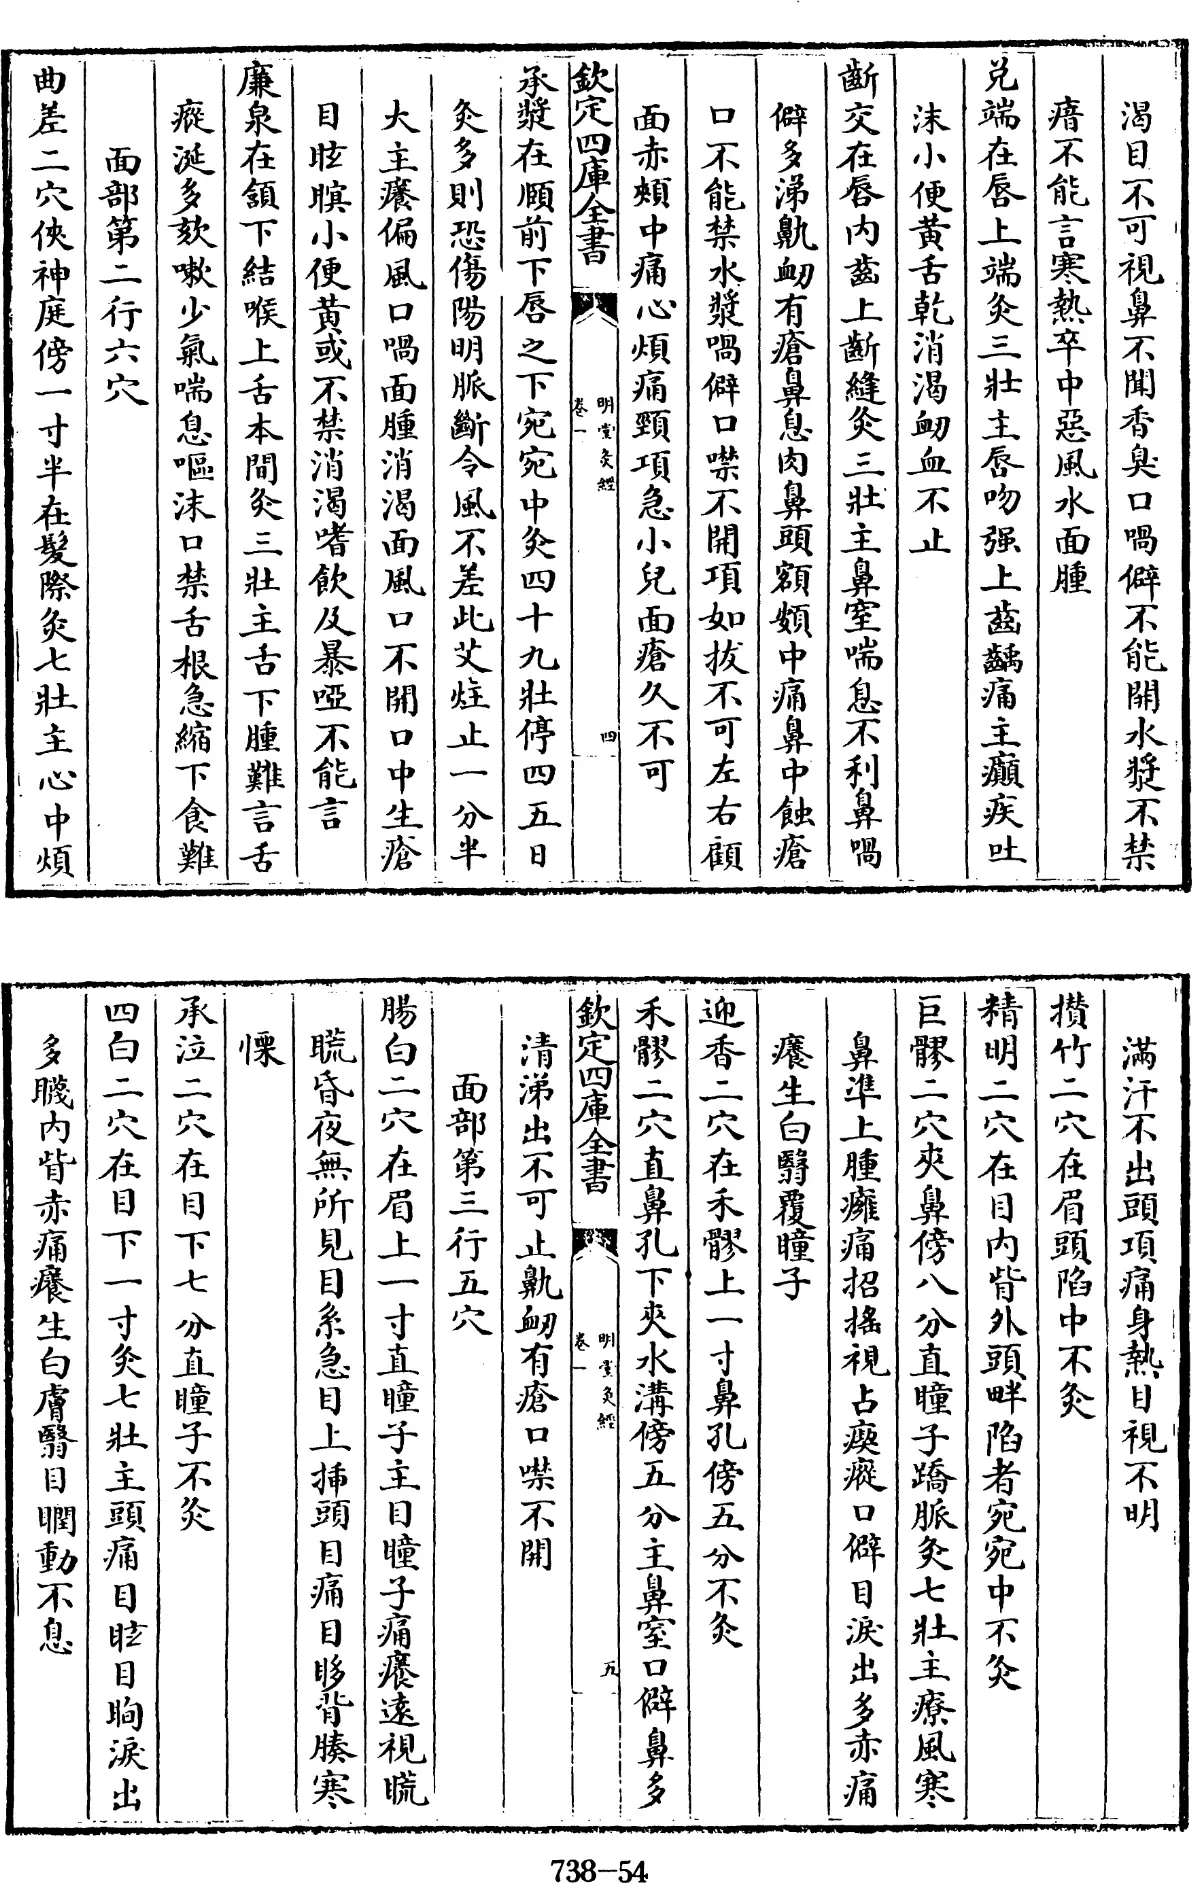 渴目不可視鼻不聞香臭口喎僻不能開水漿不禁
瘖不能言寒熱卒中惡風水面腫
兑端在唇上端灸三壯主唇吻强上齒齲痛主癲疾吐
沫小便黄舌乾消渴衂血不止
齗交在唇内齒上齗縫灸三壯主鼻窒喘息不利鼻喎
僻多涕鼽衂有瘡鼻息肉鼻頭額頞中痛鼻中蝕瘡
口不能禁水漿喎僻口噤不開項如拔不可左右顧
面赤頰中痛心煩痛頸項急小兒面瘡久不可
欽定四庫全書
明堂灸經
卷一
四
承漿在頤前下唇之下宛宛中灸四十九壯停四五日
灸多則恐傷陽明脈斷令風不差此艾炷止一分半
大主癢偏風口喎面腫消渴面風口不開口中生瘡
目眩瞑小便黄或不禁消渴嗜飲及暴啞不能言
廉泉在頷下結喉上舌本間灸三壯主舌下腫難言舌
瘲涎多欬嗽少氣喘息嘔沫口禁舌根急縮下食難
面部第二行六穴
曲差二穴俠神庭傍一寸半在髮際灸七壯主心中煩
滿汗不出頭項痛身熱目視不明
攅竹二穴在眉頭陷中不灸
精明二穴在目内眥外頭畔陷者宛宛中不灸
巨髎二穴夾鼻傍八分直瞳子蹻脈灸七壯主療風寒
鼻準上腫癰痛招摇視占瘈瘲口僻目淚出多赤痛
癢生白翳覆瞳子
迎香二穴在禾髎上一寸鼻孔傍五分不灸
禾髎二穴直鼻孔下夾水溝傍五分主鼻窒口僻鼻多
欽定四庫全書
明堂灸經
卷一
五
清涕出不可止鼽衂有瘡口噤不開
面部第三行五穴
腸白二穴在眉上一寸直瞳子主目瞳子痛癢遠視䀮
䀮昏夜無所見目系急目上揷頭目痛目眵背腠寒
慄
承泣二穴在目下七分直瞳子不灸
四白二穴在目下一寸灸七壯主頭痛目眩目眴淚出
多䁾内眥赤痛癢生白膚翳目瞤動不息
738-54